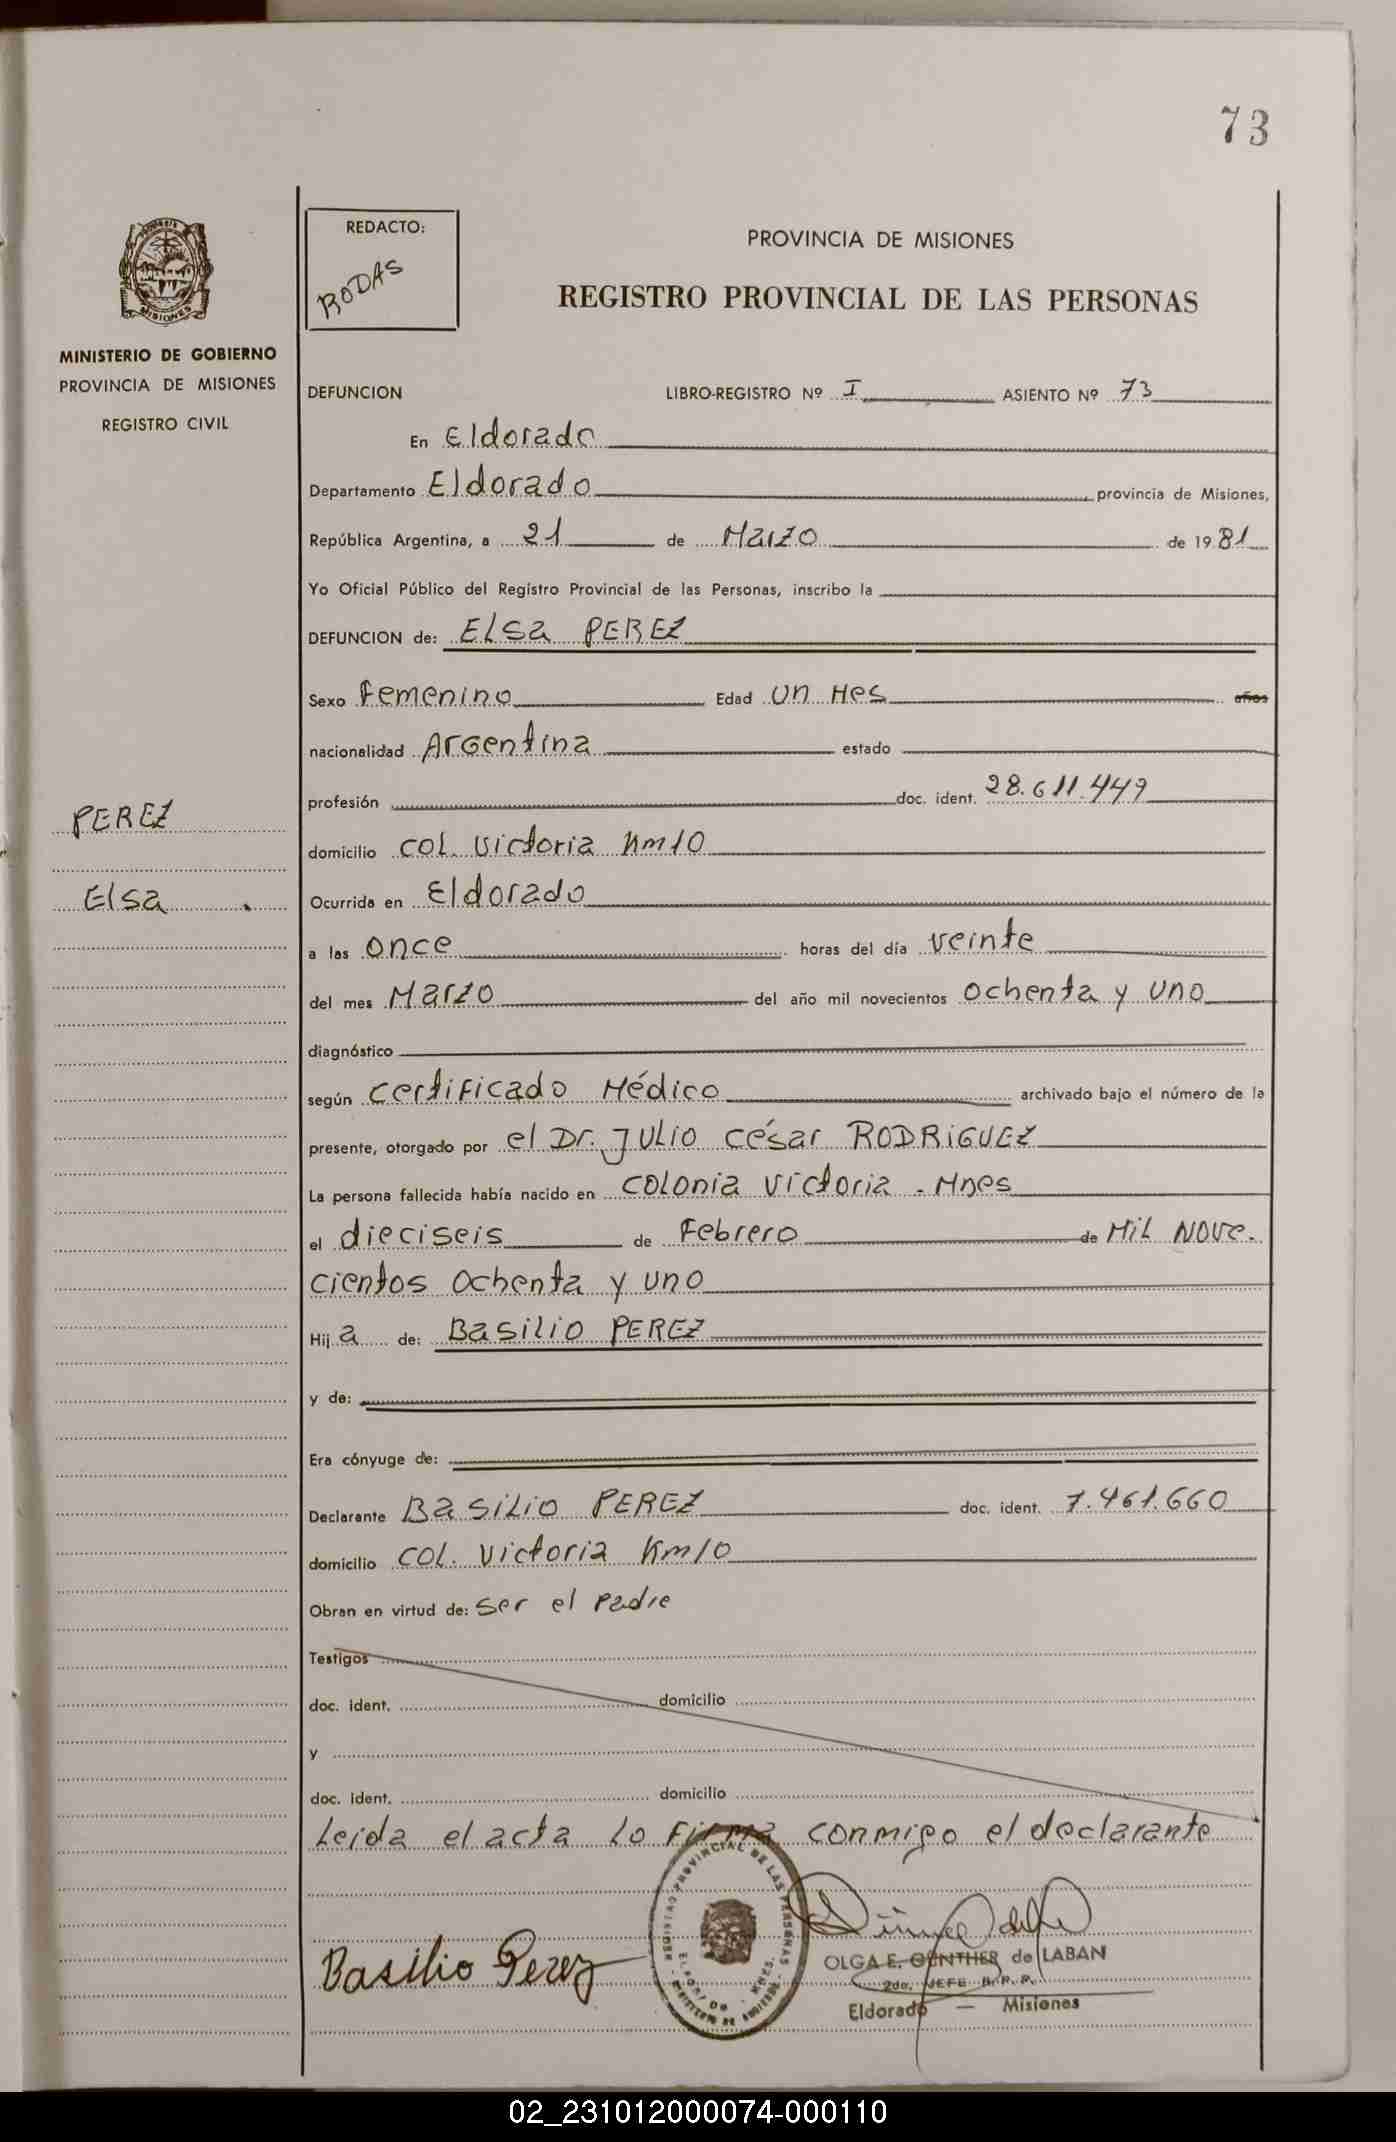 73
REDACTO:
RODAS
PROVINCIA DE MISIONES
REGISTRO PROVINCIAL DE LAS PERSONAS
MISIONES
MINISTERIO DE GOBIERNO
PROVINCIA DE MISIONES
REGISTRO CIVIL
DEFUNCION LIBRO-REGISTRO Nº I ASIENTO Nº 73
En Eldorado
Departamento Eldorado provincia de Misiones,
República Argentina, a 21 de Marzo de 1981
Yo Oficial Público del Registro Provincial de las Personas, inscribo la
DEFUNCION de: Elsa PEREZ
Sexo Femenino Edad un Mes años
nacionalidad Argentina estado
profesión doc. ident. 28.611.449
PEREZ
domicilio COL. Victoria Km10
Elsa
Ocurrida en Eldorado
a las once horas del día veinte
del mes Marzo del año mil novecientos ochenta y uno
diagnóstico
según certificado Médico archivado bajo el número de la
presente, otorgado por el Dr. Julio César RODRIGUEZ
La persona fallecida había nacido en Colonia Victoria - Mnes
el dieciseis de Febrero de Mil Nove.
cientos ochenta y uno
Hija de: Basilio PEREZ
y de:
Era cónyuge de:
Declarante Basilio PEREZ doc. ident. 7.461.660
domicilio COL. Victoria Km10
Obran en virtud de: ser el padre
Testigos
doc. ident. domicilio
y
doc. ident. domicilio
Leida el acta lo firma conmigo el declarante
REGISTRO PROVINCIAL DE LAS PERSONAS
Basilio Perez
OLGA E. GÜNTHER de LABAN
2do. JEFE R. P. P.
Eldorado — Misiones
02_231012000074-000110